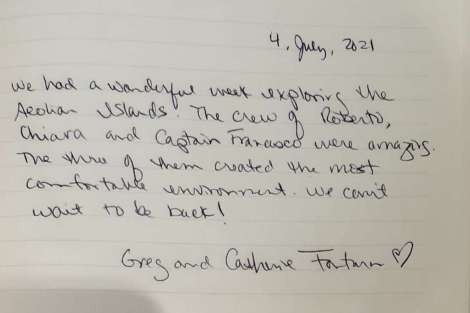 4, July, 2021
We had a wonderful week exploring the
Aeolian Islands. The crew of Roberto,
Chiara and Captain Francesco were amazing.
The three of them created the most
comfortable environment. We can't
wait to be back!
Greg and Catherine